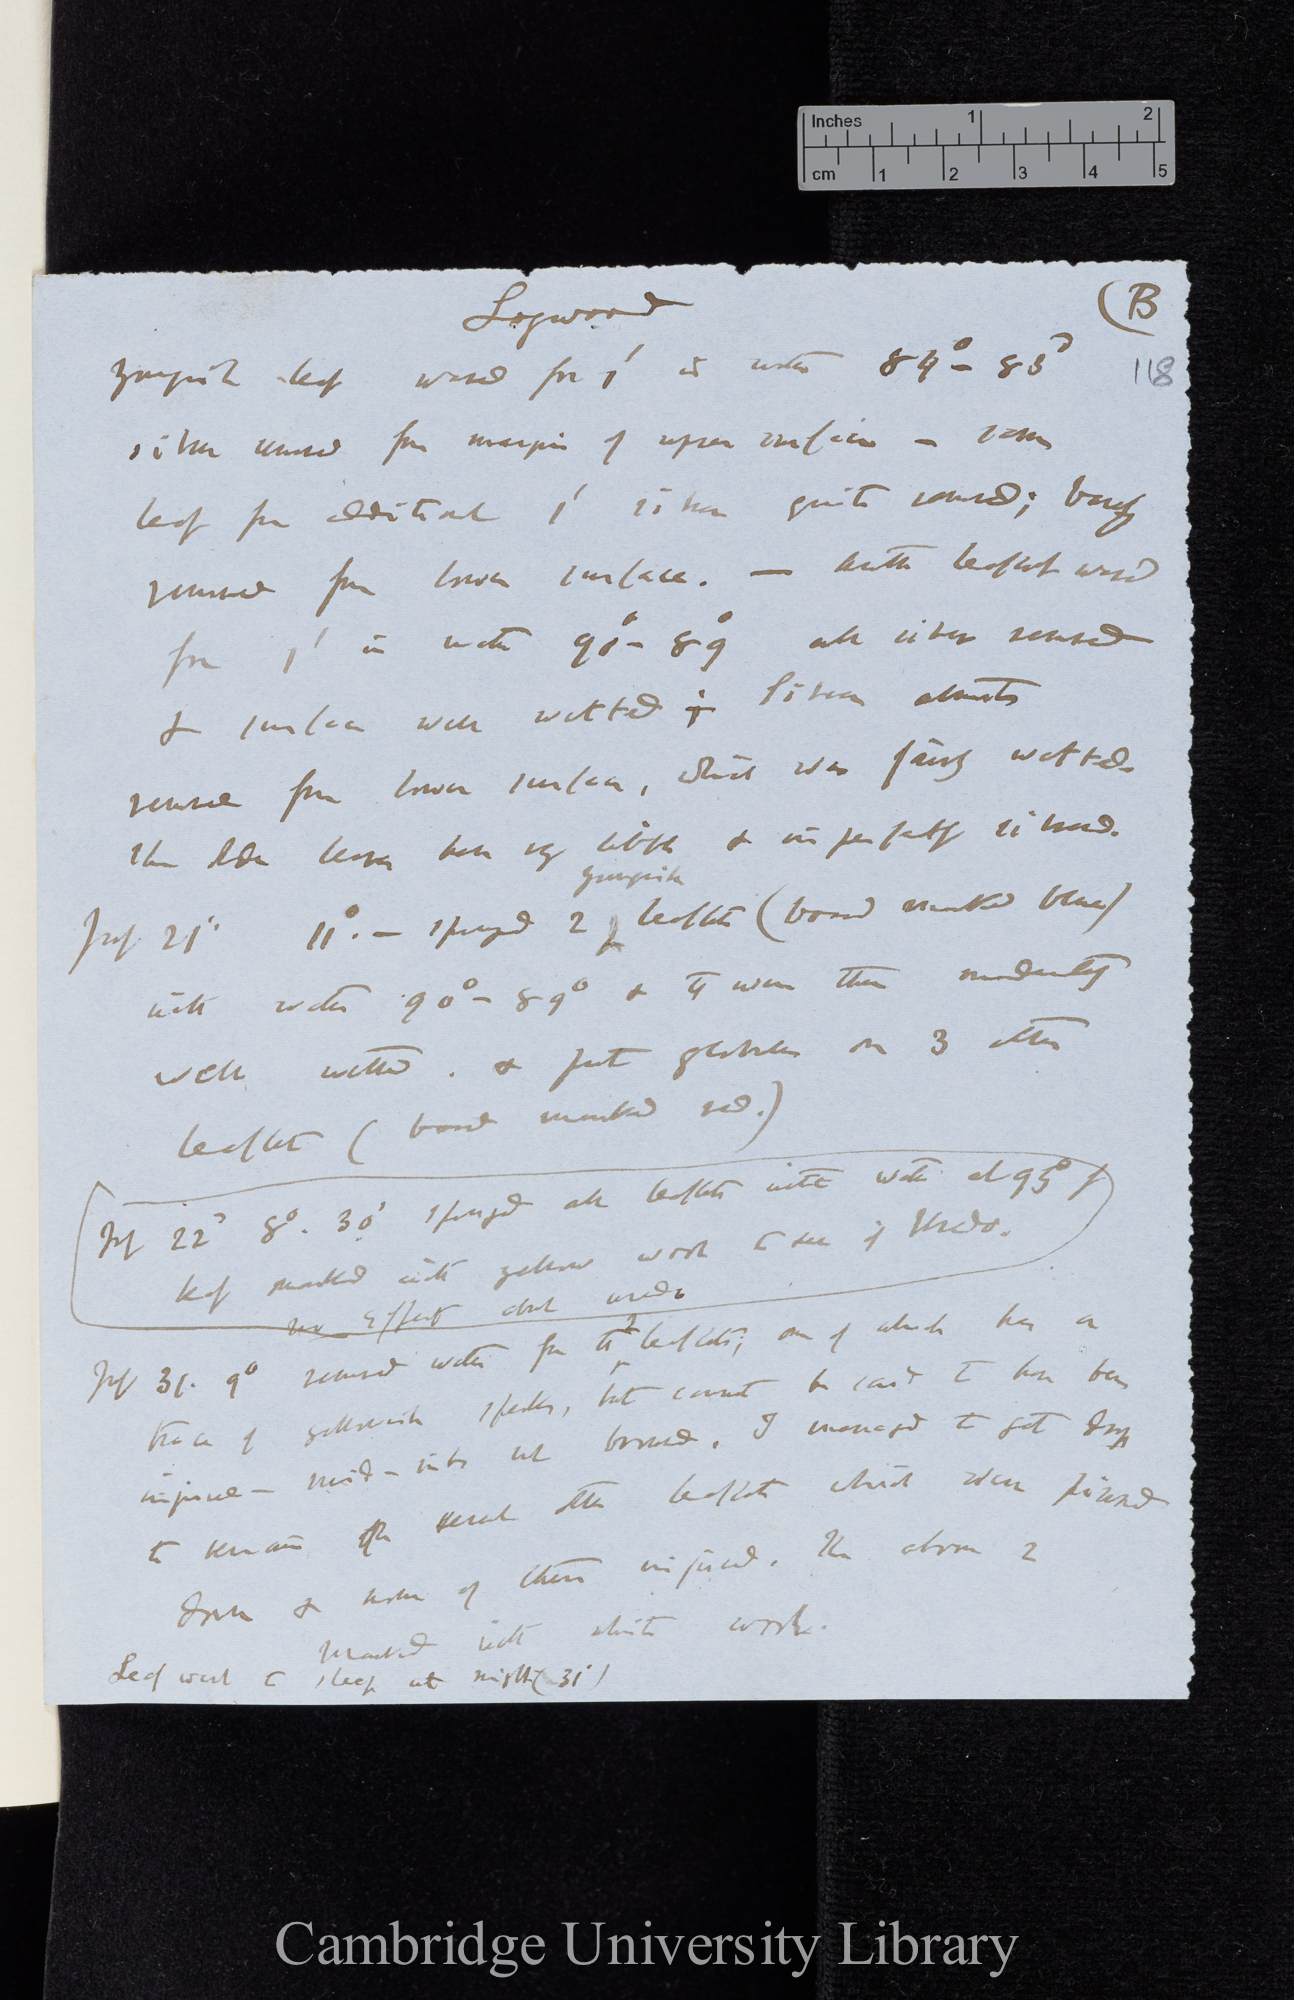 Inches 1 2
cm 1 2 3 4 5
Logwood
(B
118
youngish leaf waved for 1' in water 84° – 83°
silver removed from margin of upper surface – same
leaf for additional 1' silver quite removed; barely
removed from lower surface. — leaflet waved
for 1' in water 90° – 89° all silver removed
& surface well wetted & silver almost
removed from lower surface, which was fairly wetted.
The older leaves have very little & imperfectly silvered.
youngish
21' 11°. – syringed 2 leaflets (board marked blue)
with water 90° – 89° & they were then moderately
well wetted. & put globules on 3 other
leaflets (board marked red.)
22° 8°. 30' syringed all leaflets with water at 95° /
leaf marked with yellow wool to see if Uredo.
no effect about uredo
31. 9° removed water from the 2 leaflets; one of which has a
trace of yellowish specks, but cannot be said to have been
injured – mid-ribs not browned. I managed to get drops
to remain on several other leaflets which were
& none of them injured. The above 2
marked with white wool.
Leaf went to sleep at night (31')
Cambridge University Library